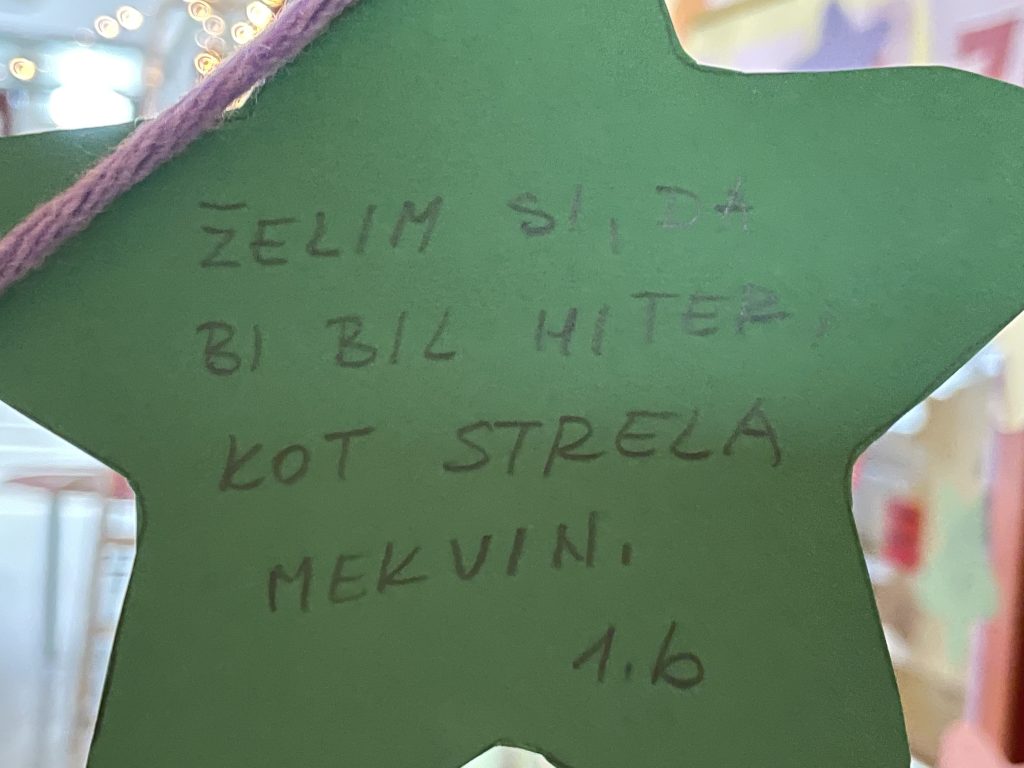 ŽELIM SI, DA
BI BIL HITER,
KOT STRELA
MEKVIN.
1.b